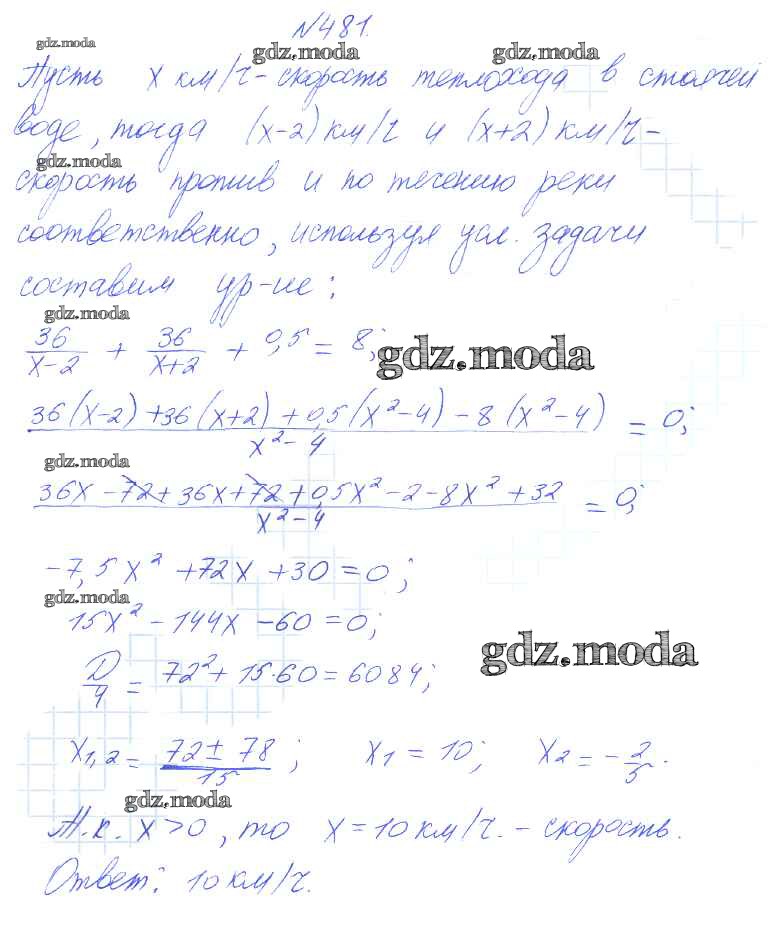 №481.
gdz.moda
gdz.moda
gdz.moda
Пусть x км/ч - скорость теплохода в стоячей
воде, тогда (x-2) км/ч и (x+2) км/ч -
gdz.moda
скорость против и по течению реки
соответственно, используя усл. задачи
составим ур-ие:
gdz.moda
36/(x-2) + 36/(x+2) + 0,5 = 8;
gdz.moda
(36(x-2)+36(x+2)+0,5(x²-4)-8(x²-4))/(x²-4) = 0;
gdz.moda
(36x-72+36x+72+0,5x²-2-8x²+32)/(x²-4) = 0;
-7,5x²+72x+30=0;
gdz.moda
15x²-144x-60=0;
gdz.moda
D/4 = 72²+15·60=6084;
x1,2 = (72±78)/15; x1=10; x2=-2/5.
gdz.moda
Т.к. x>0, то x=10км/ч. - скорость.
Ответ: 10км/ч.